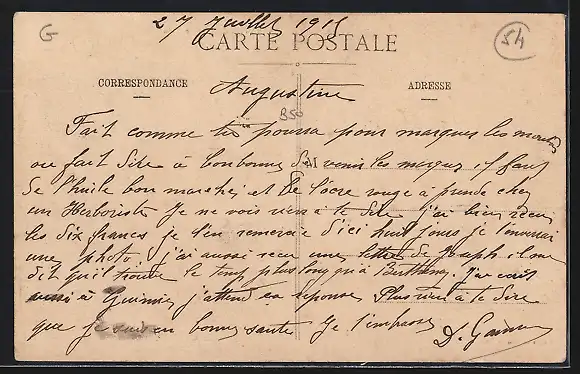 G
27 Juillet 1915
54
CARTE POSTALE
CORRESPONDANCE
ADRESSE
Augustine
B50
Fait comme tu poura pour marquer les moutons
ou fait dire à bonbonne de venir les marquer il faut
de l'huile bon marcher et de l'ocre rouge à prende chez
un Herboriste Je ne vois rien à te dire j'ai bien reçu
les dix francs je t'en remercie d'ici huit jours je t'enverrai
une photo, j'ai aussi reçu une lettre de Joseph il me
dit qu'il trouve le temp plus long qu'à Berthany. J'ai écrit
aussi à j'attend sa reponse Plus rien à te dire
que je suis en bonne santé Je t'embrasse
D.